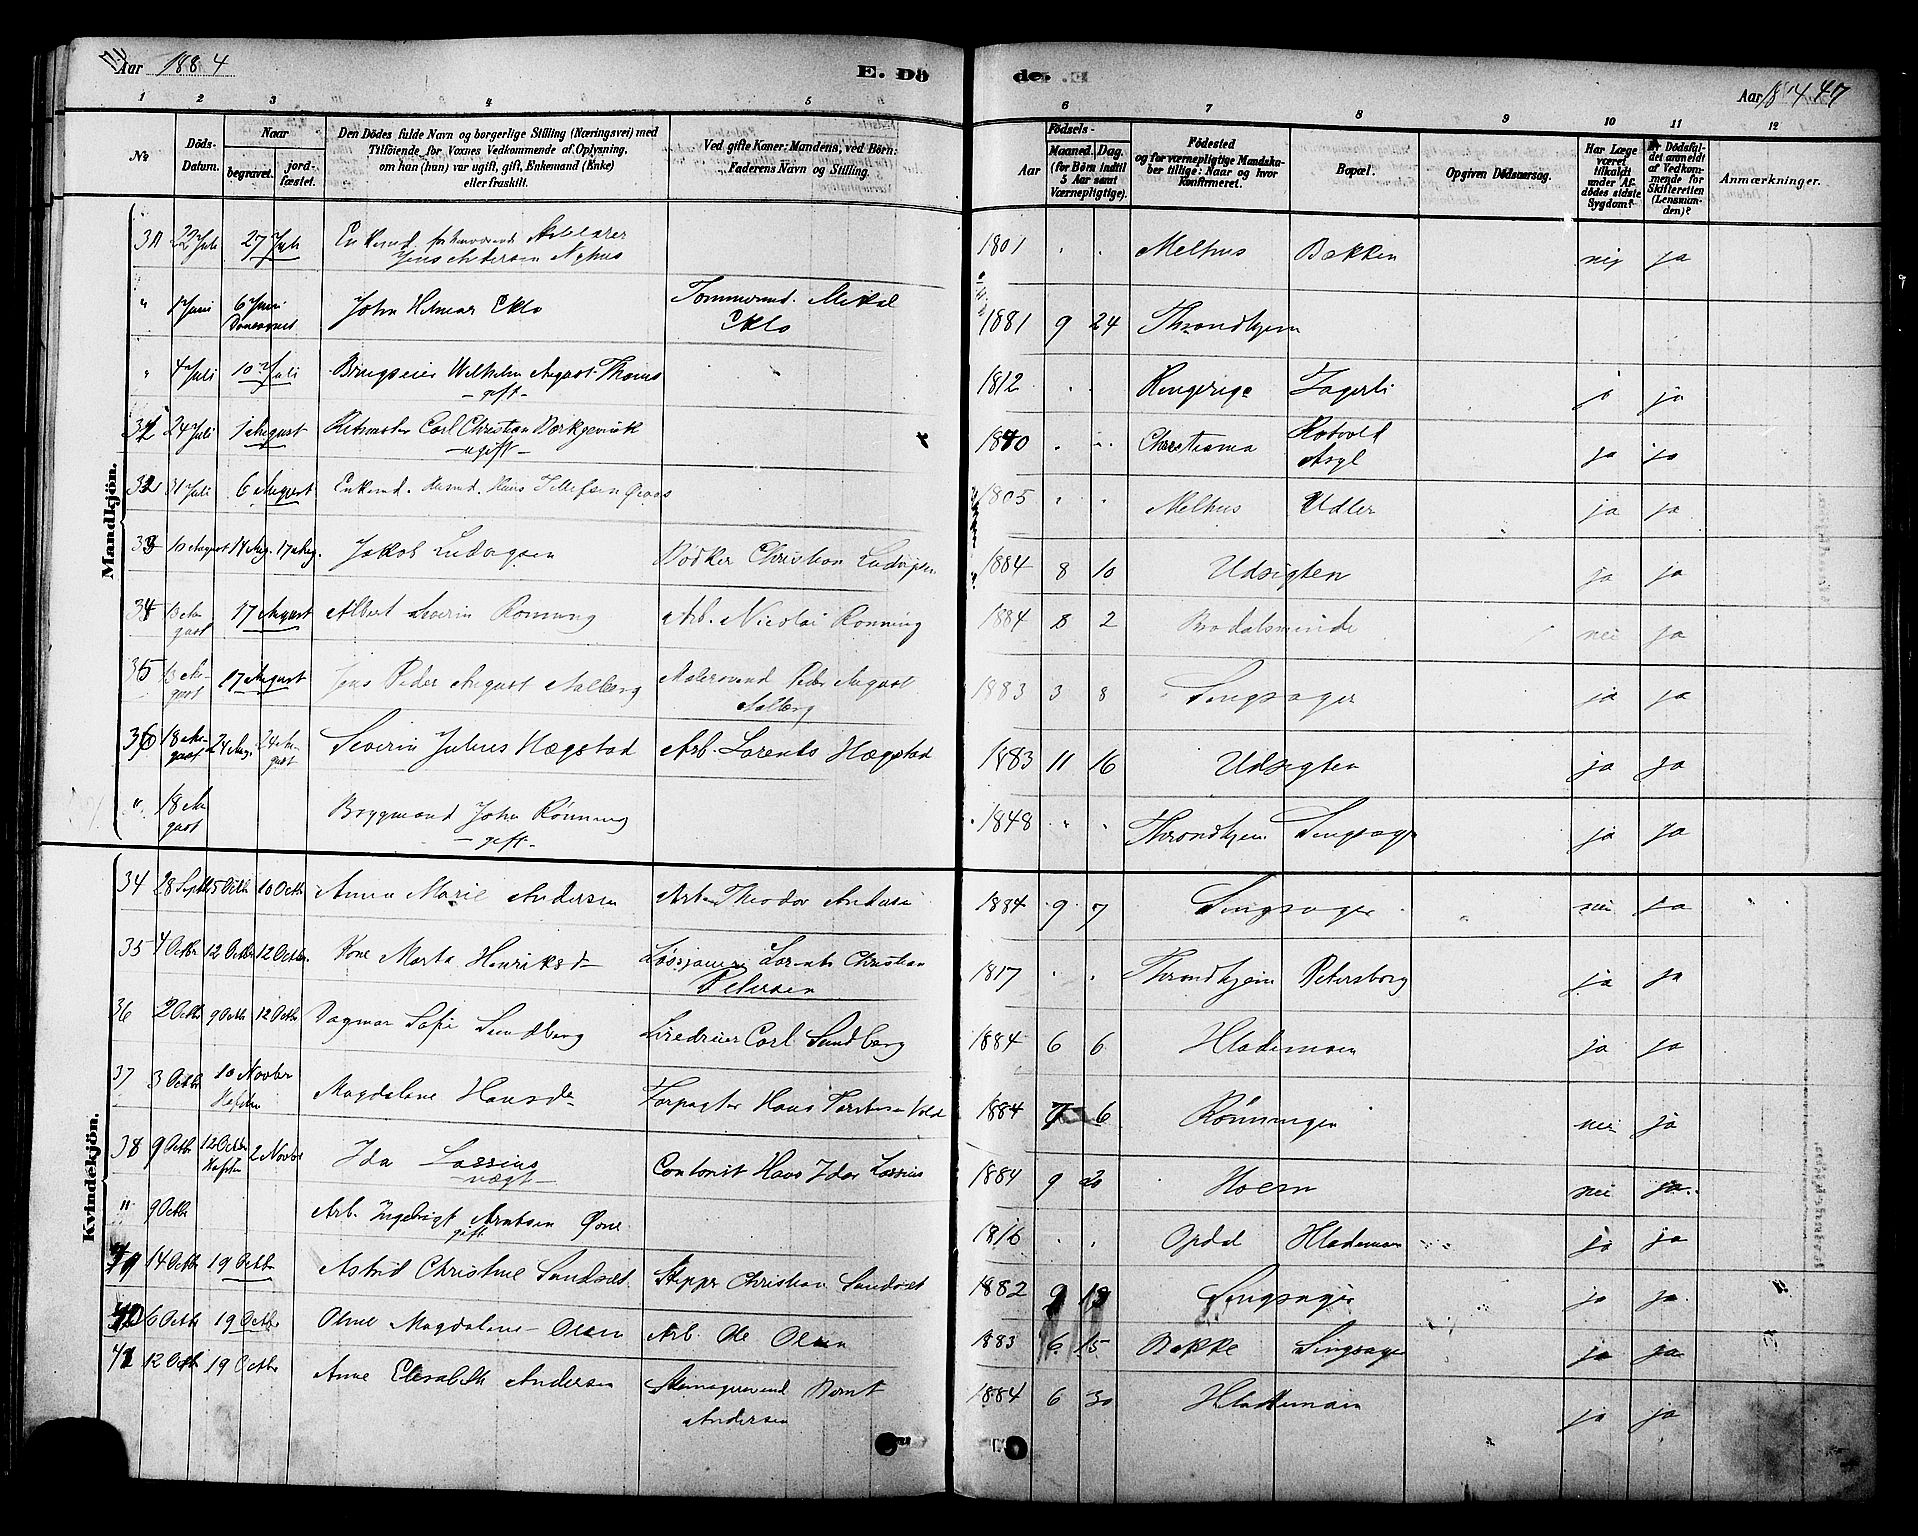 Aar 1884
E. Dö
de.
Aar 1884 47
1 2 3 4 5 6 7 8 9 10 11 12
No
Döds-Datum.
Naar
begravet.
jordfæstet.
Den Dödes fulde Navn og borgerlige Stilling (Næringsvei) med
Tilföiende for Voxnes Vedkommende af Oplysning,
om han (hun) var ugift, gift, Enkemand (Enke)
eller fraskilt.
Ved gifte Koner: Mandens, ved Börn:
Faderens Navn og Stilling.
Födsels-
Aar
Maaned. Dag.
(for Börn indtil
5 Aar samt
Værnepligtige).
Födested
og for værnepligtige Mandskaber tillige: Naar og hvor
konfirmeret.
Bopæl.
Opgiven Dödsaarsag.
Har Læge
været
tilkaldt
under Afdödes sidste
Sygdom?
Er Dödsfaldet anmeldt
af Vedkommende for
Skifteretten
(Lensmanden)?
Anmærkninger.
Mandkjön.
31 22 Juli 27 Juli Enkemd. Arbeider 1801 " " Melhus Bakken nei ja
Jens Andersen Nyhus
" 1 Juni 6 Juni John Helmer Eklo Tømmermd. Mikal Eklo 1881 9 24 Throndhjem
" 4 Juli 10 Juli Brugseier Wilhelm August Thoms 1812 " " Ringerige Fagerli ja ja
- gift -
31 24 Juli 1 August Carl Christian 1840 " " Christiania Rotvold Asyl ja ja
- ugift -
32 31 Juli 6 August Enkemd. Hans Tellefsen 1805 " " Melhus Udler ja ja
33 10 August 17 Aug. 17 Aug. Jakob Ludvigsen Bødker Christian Ludvigsen 1884 8 10 Udsigten ja ja
34 13 August 17 August Albert Severin Rønning Arb. Nicolai Rønning 1884 8 2 Brodalsminde nei ja
35 13 August 17 August Jens Peder August Aalberg Peder August Aalberg 1883 3 8 Singsager ja ja
36 18 August 24 Aug. 24 August Severin Julius Hægstad Arb. Lorents Hægstad 1883 11 16 Udsigten ja ja
" 18 August Bryggmand John Rønning 1848 " " Throndhjem Singsager ja ja
- gift -
Kvindekjön.
34 28 Septb 5 Octb 10 Octb Anna Marie Andersen Arb. Theodor Andersen 1884 9 7 Singsager nei ja
35 4 Octbr 12 Octbr 12 Octbr. Kone Marta Henriksd Lorents Christian Petersen 1817 " " Throndhjem Petersborg ja ja
36 2 Octbr 9 Octb 12 Octbr Dagmar Sofie Sundberg Carl Sundberg 1884 6 6 Hlademoen ja ja
37 3 Octbr 10 Novbr Magdalene Hansd Forpagter Hans Torstensen Vold 1884 7 6 Rønningen nei ja
38 9 Octbr 12 Octbr 2 Novbr Ida Lossius Contorist Hans Idar Lossius 1884 9 20 Moen nei ja
" 9 Octb Arb. Ingebrigt Arntsen Øvne 1816 " " Opdal Hlademoen ja ja
gift
39 14 Octbr 19 Octbr Astrid Christine Sundset Skipper Christian Sundset 1882 9 18 Singsager ja ja
40 6 Octbr 19 Octbr Oline Magdalene Olsen Arb. Ole Olsen 1883 6 15 Bakke Singsager ja ja
41 12 Octb 19 Octbr Anne Elisabeth Andersen Bernt Andersen 1884 6 30 Hlademoen ja ja